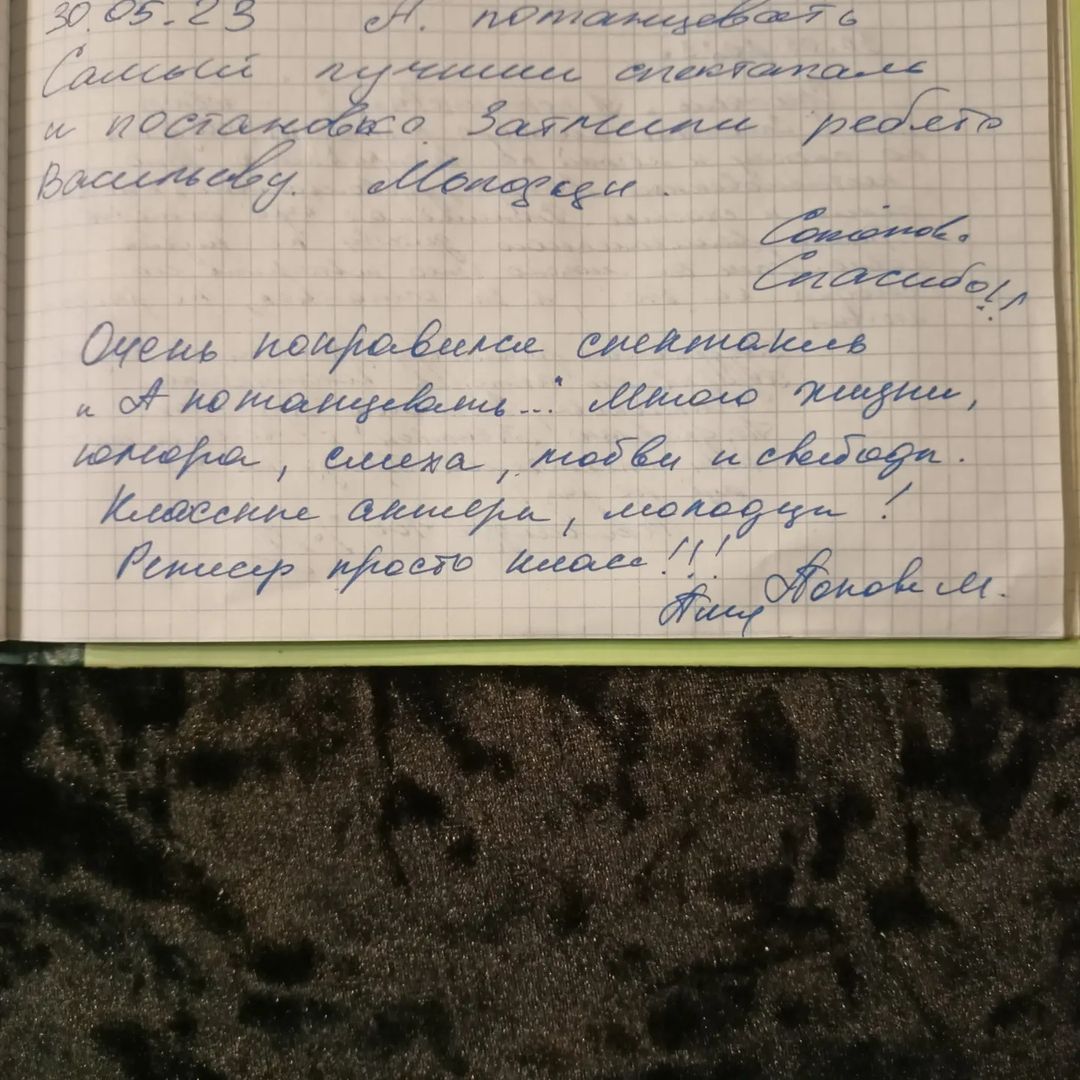 30.05.23 А. потанцевать
Самый лучший спектакаль
и постановка Затмили ребята
Васильеву. Молодцы.
Соколов.
Спасибо!!
Очень понравился спектакль
"А потанцевать..." Много жизни,
юмора, смеха, любви и свободы.
Классные актеры, молодцы!
Режисер просто класс!!!
Попов М.